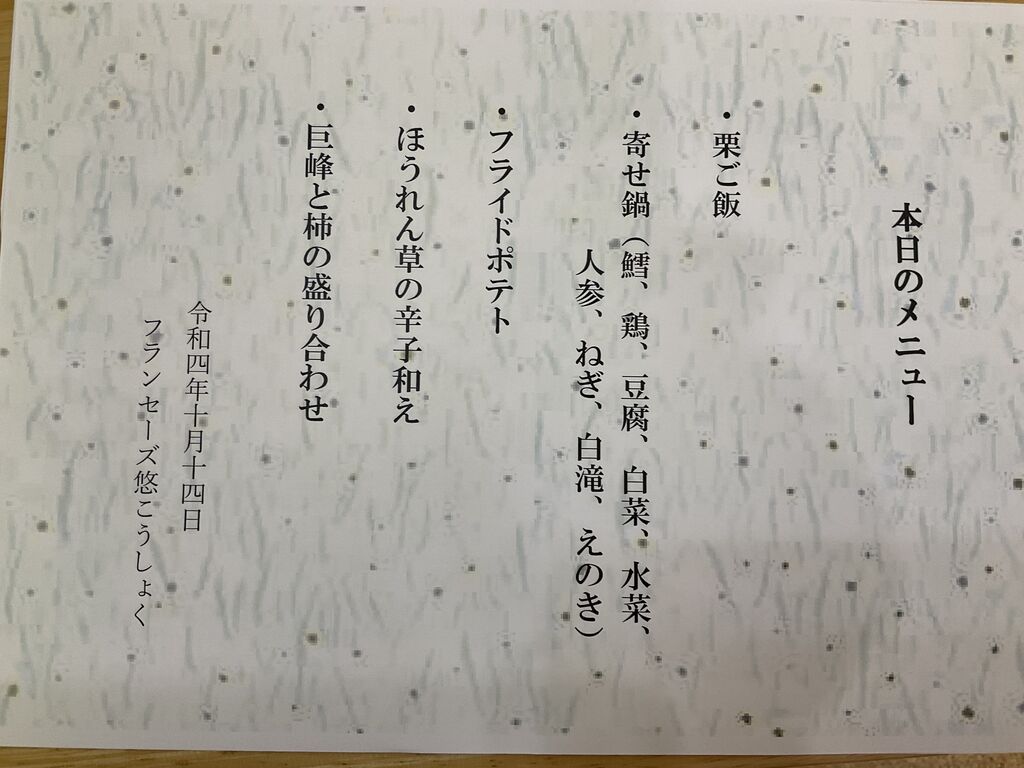 本日のメニュー
・栗ご飯
・寄せ鍋（鱈、鶏、豆腐、白菜、水菜、
人参、ねぎ、白滝、えのき）
・フライドポテト
・ほうれん草の辛子和え
・巨峰と柿の盛り合わせ
令和四年十月十四日
フランセーズ悠こうしょく